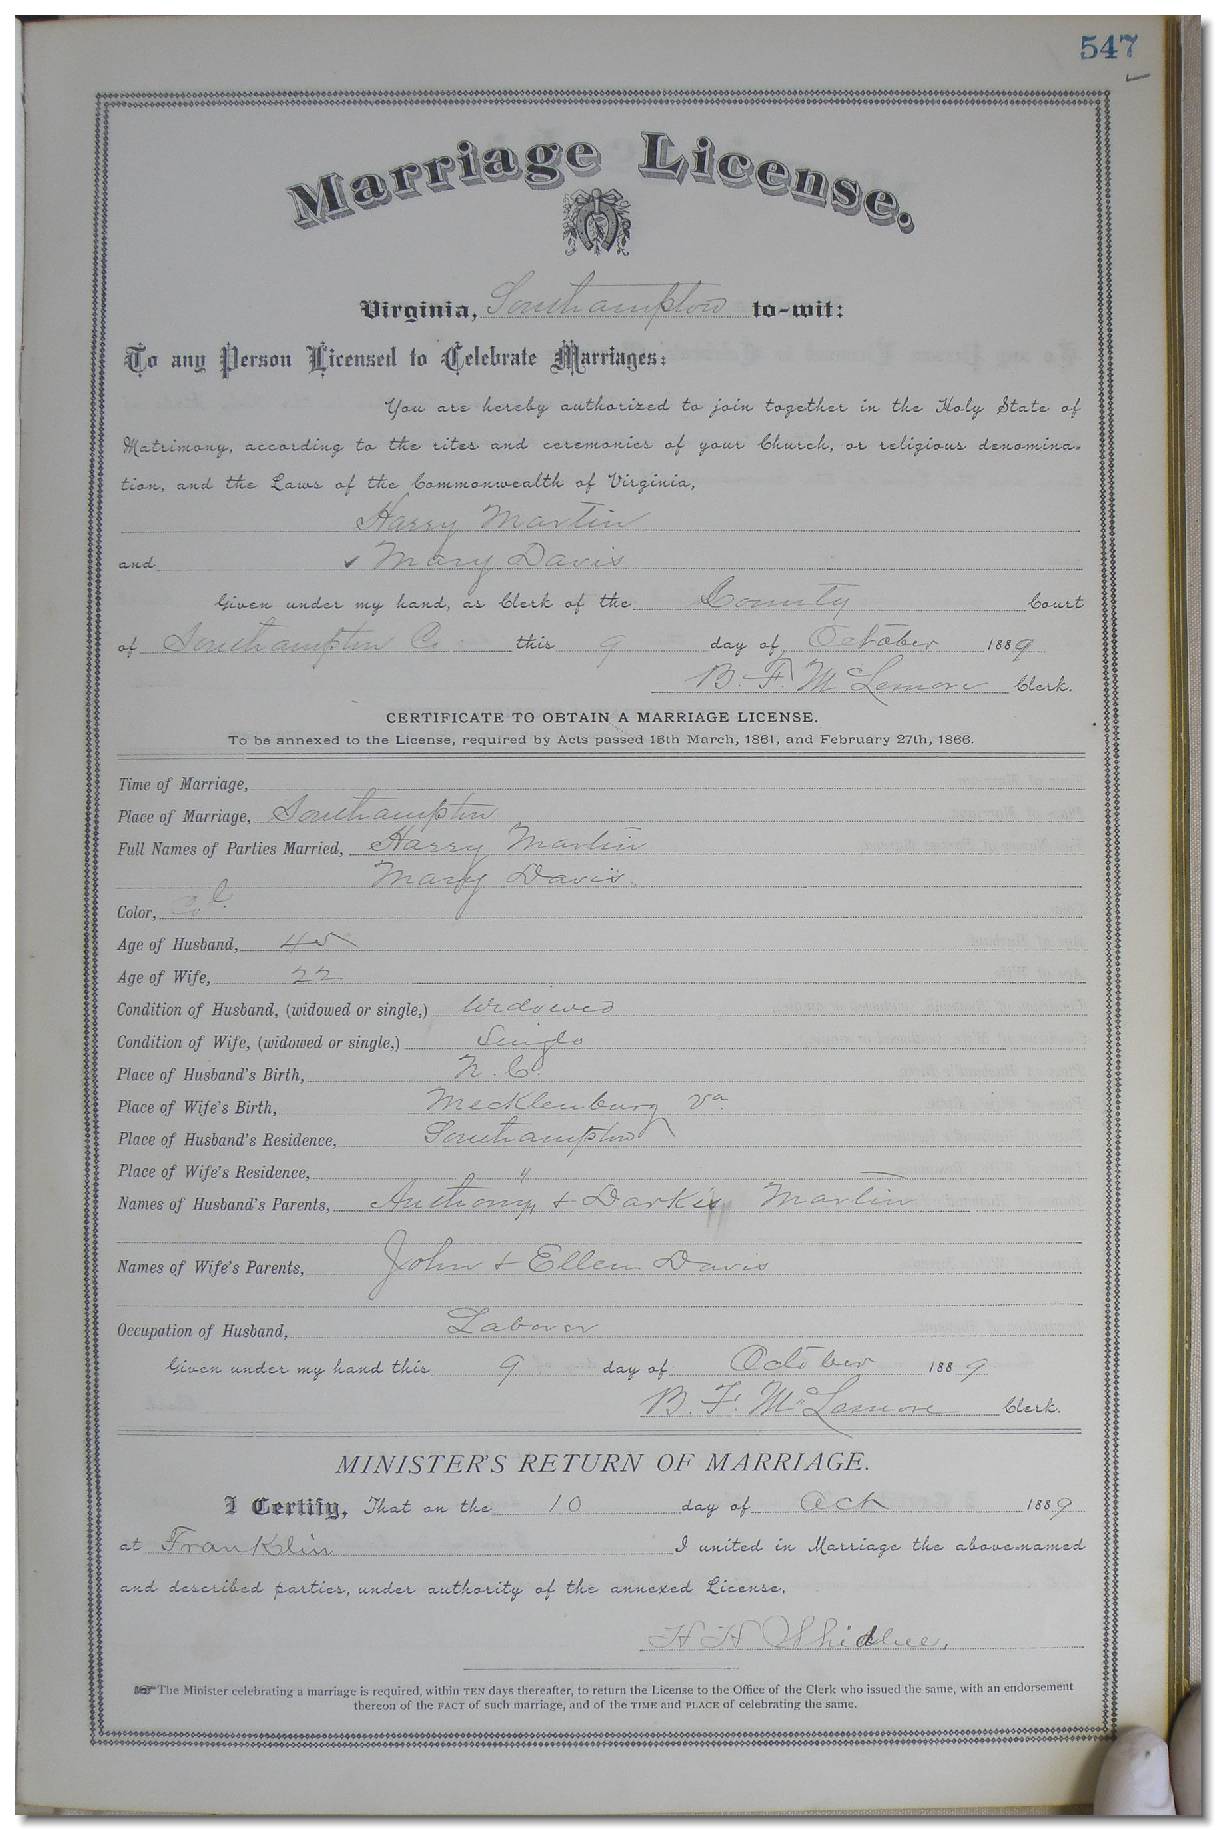 547
Marriage License.
Virginia, Southampton to-wit:
To any Person Licensed to Celebrate Marriages:
You are hereby authorized to join together in the Holy State of
Matrimony, according to the rites and ceremonies of your Church, or religious denomina-
tion, and the Laws of the Commonwealth of Virginia,
Harry Martin
and Mary Davis
Given under my hand, as Clerk of the County Court
of Southampton Co this 9 day of October 1889
B. F. McLemore Clerk.
CERTIFICATE TO OBTAIN A MARRIAGE LICENSE.
To be annexed to the License, required by Acts passed 15th March, 1861, and February 27th, 1866.
Time of Marriage,
Place of Marriage, Southampton
Full Names of Parties Married, Harry Martin
Mary Davis.
Color, Col
Age of Husband, 45
Age of Wife, 22
Condition of Husband, (widowed or single,) Widowed
Condition of Wife, (widowed or single,) Single
Place of Husband's Birth, N. C
Place of Wife's Birth, Mecklenburg Va
Place of Husband's Residence, Southampton
Place of Wife's Residence, "
Names of Husband's Parents, Anthony & Martin
Names of Wife's Parents, John & Ellen Davis
Occupation of Husband, Laborer
Given under my hand this 9 day of October 1889
B. F. McLemore Clerk.
MINISTER'S RETURN OF MARRIAGE.
I Certify, That on the 10 day of Oct 1889
at Franklin I united in Marriage the above-named
and described parties, under authority of the annexed License.
H H
The Minister celebrating a marriage is required, within TEN days thereafter, to return the License to the Office of the Clerk who issued the same, with an endorsement
thereon of the FACT of such marriage, and of the TIME and PLACE of celebrating the same.